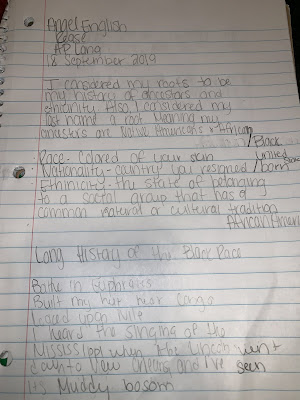 Angel English
Rease
AP Lang
18 September 2019
I considered my roots to be
my history of ancestors and
ethnicity. Also, I considered my
last name a root. Meaning my
ancestors are Native Americans & African
/Black
Race - Colored of your skin
United
Nationality - country you resigned / born
Ethinicity - the state of belonging
to a social group that has a
common natural or cultural tradition
African Ameri
Long History of the Black Race
Bathe in Euphrates
Built my hut near Congo
upon Nile
heard the singing of the
Mississippi when Abe Lincoln went
down to New Orleans, and I've seen
its Muddy bosom